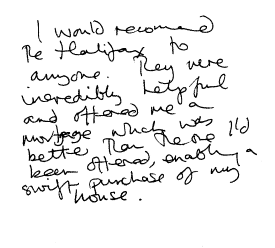 I would recomend
the Halifax to
anyone. They were
incredibly helpful
and offered me a
mortgage which was
better than the one I'd
been offered, enabling a
swift purchase of my
house.